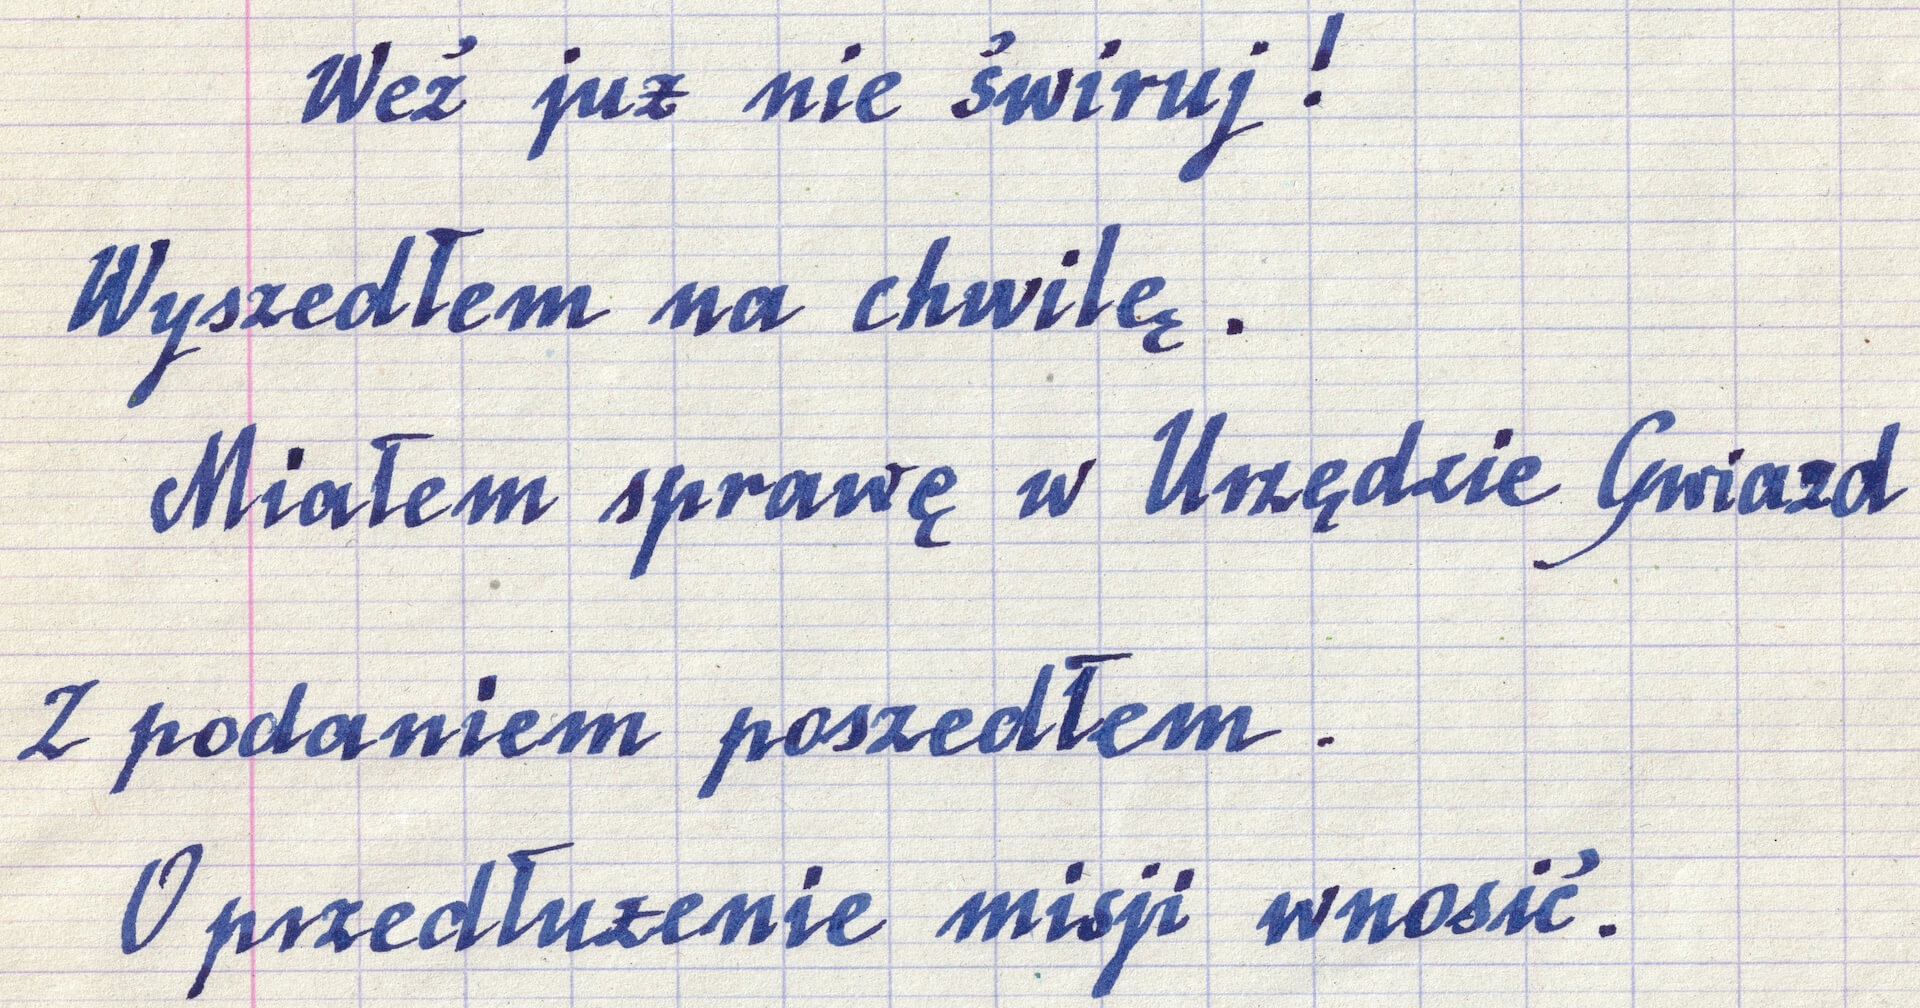 Weź już nie świruj!
Wyszedłem na chwilę.
Miałem sprawę w Urzędzie Gwiazd
Z podaniem poszedłem.
O przedłużenie misji wnosić.